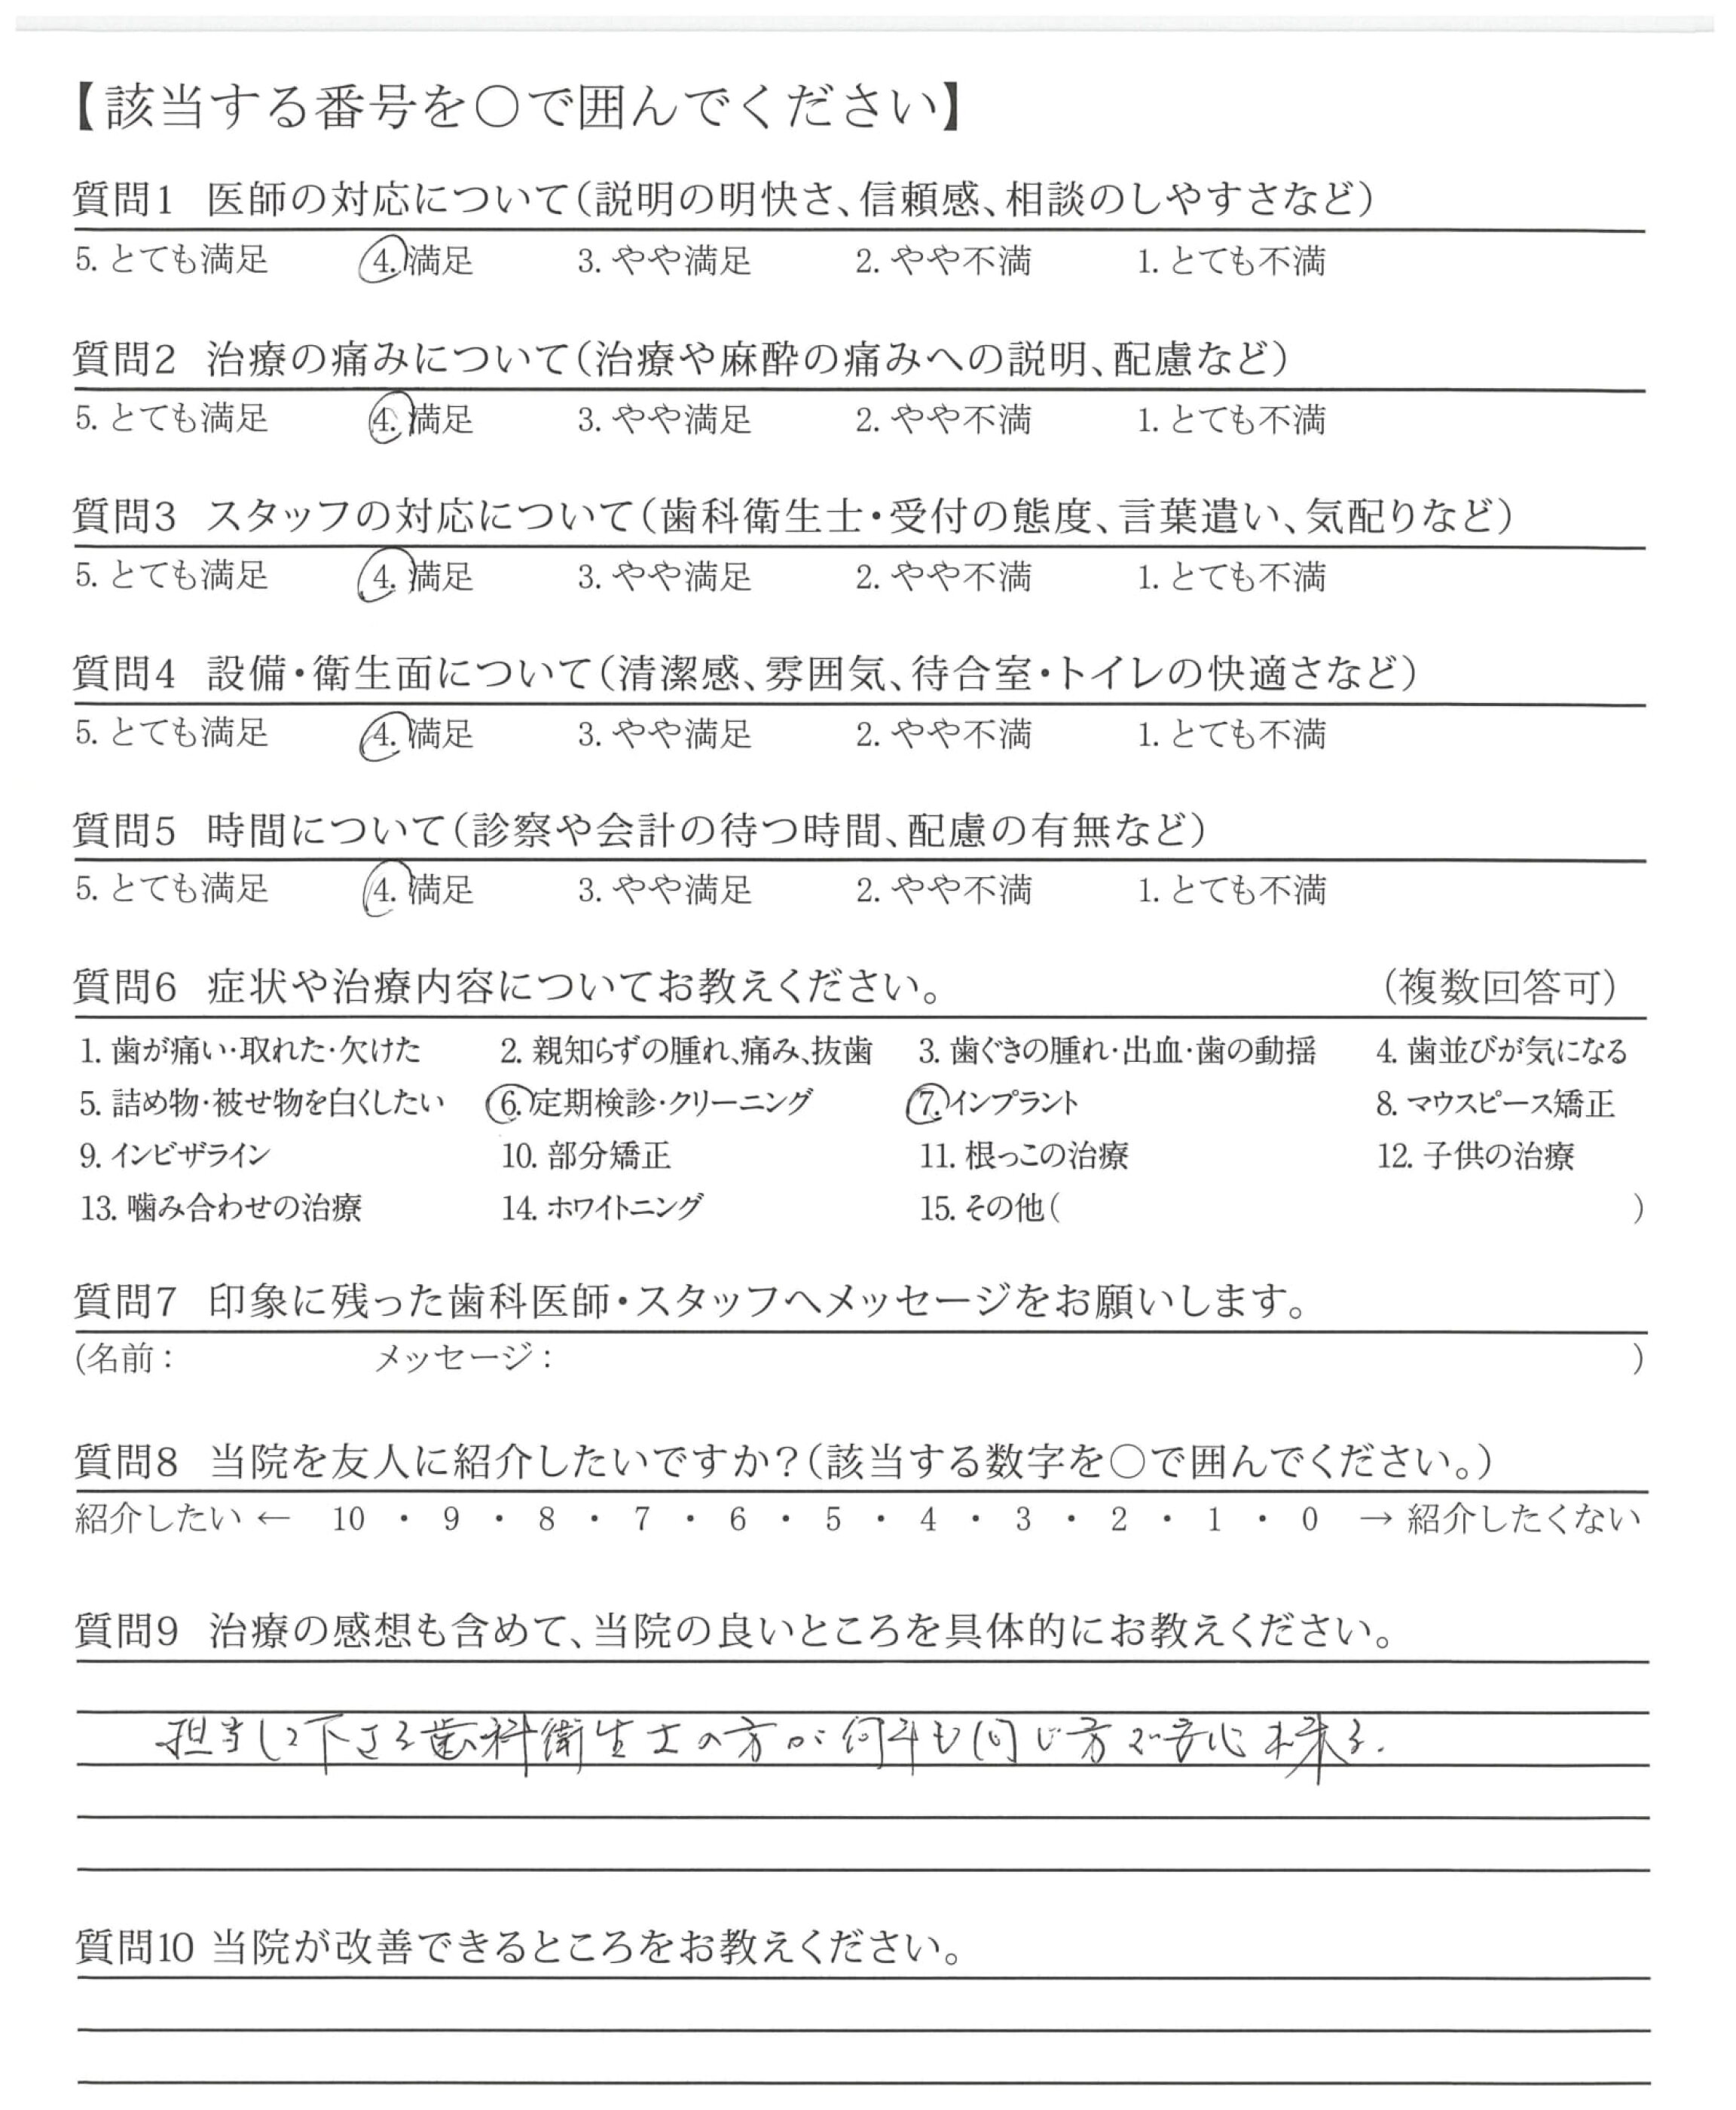 【該当する番号を○で囲んでください】
質問1 医師の対応について(説明の明快さ、信頼感、相談のしやすさなど)
5. とても満足 4. 満足 3. やや満足 2. やや不満 1. とても不満
質問2 治療の痛みについて(治療や麻酔の痛みへの説明、配慮など)
5. とても満足 4. 満足 3. やや満足 2. やや不満 1. とても不満
質問3 スタッフの対応について(歯科衛生士・受付の態度、言葉遣い、気配りなど)
5. とても満足 4. 満足 3. やや満足 2. やや不満 1. とても不満
質問4 設備・衛生面について(清潔感、雰囲気、待合室・トイレの快適さなど)
5. とても満足 4. 満足 3. やや満足 2. やや不満 1. とても不満
質問5 時間について(診察や会計の待つ時間、配慮の有無など)
5. とても満足 4. 満足 3. やや満足 2. やや不満 1. とても不満
質問6 症状や治療内容についてお教えください。 (複数回答可)
1. 歯が痛い・取れた・欠けた 2. 親知らずの腫れ、痛み、抜歯 3. 歯ぐきの腫れ・出血・歯の動揺 4. 歯並びが気になる
5. 詰め物・被せ物を白くしたい 6. 定期検診・クリーニング 7. インプラント 8. マウスピース矯正
9. インビザライン 10. 部分矯正 11. 根っこの治療 12. 子供の治療
13. 噛み合わせの治療 14. ホワイトニング 15. その他( )
質問7 印象に残った歯科医師・スタッフへメッセージをお願いします。
(名前： メッセージ： )
質問8 当院を友人に紹介したいですか？(該当する数字を○で囲んでください。)
紹介したい ← 10 ・ 9 ・ 8 ・ 7 ・ 6 ・ 5 ・ 4 ・ 3 ・ 2 ・ 1 ・ 0 → 紹介したくない
質問9 治療の感想も含めて、当院の良いところを具体的にお教えください。
担当して下さる歯科衛生士の方が何年も同じ方で安心出来る.
質問10 当院が改善できるところをお教えください。